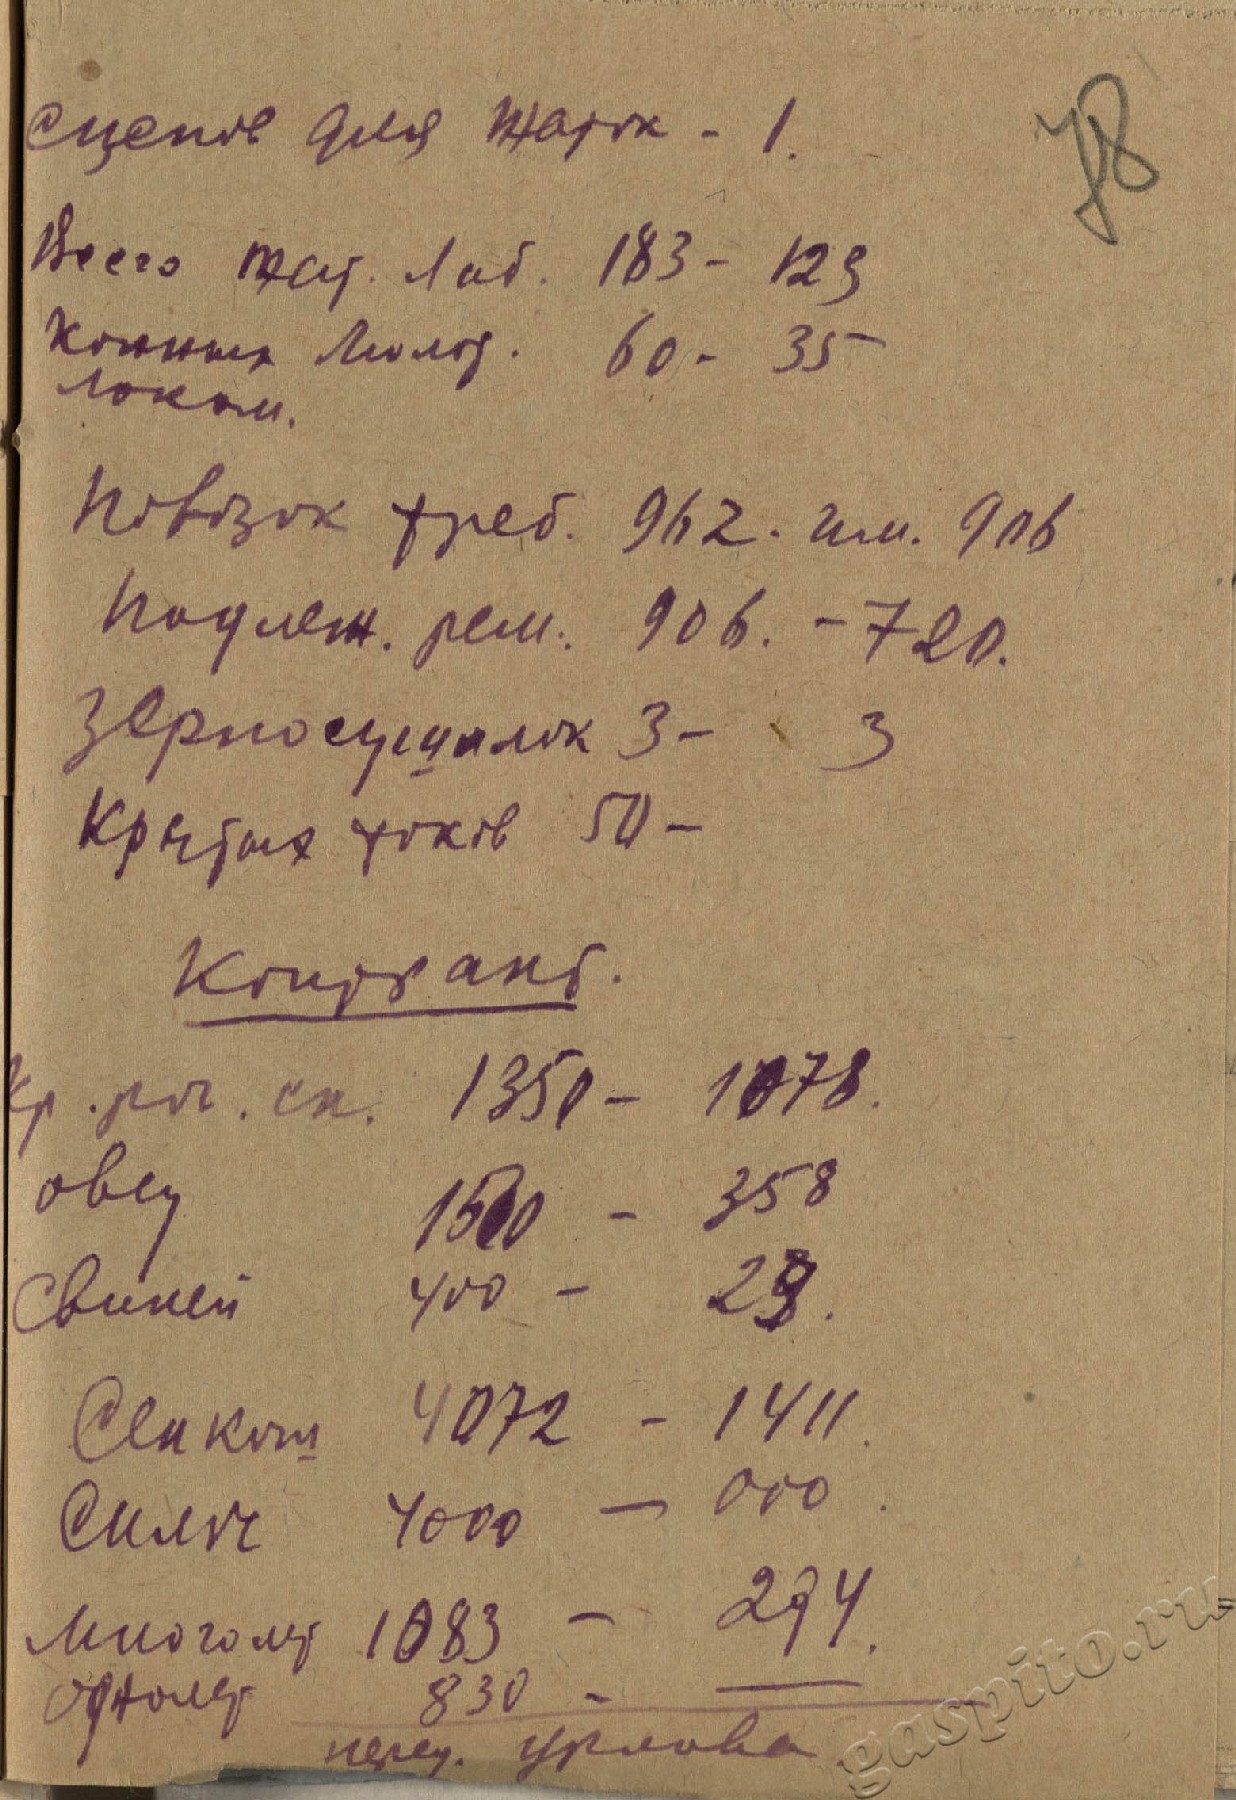 78
Сцепов для жаток - 1.
Всего жат. Лоб. 183 - 123
Конных Молот. 60 - 35
локом.
Повозок треб. 962. им. 906
Подлеж. рем. 906. - 720.
Зерносушилок 3 - 3
Крытых токов 50 -
Контракт.
Кр. рог. ск. 1350 - 1078.
овец 1500 - 358
Свиней 400 - 28.
Сенком 4072 - 1411.
Силос 4000 - 000.
Многолет 1083 - 294.
однолет 830 -
перед. Урлова
gaspito.ru